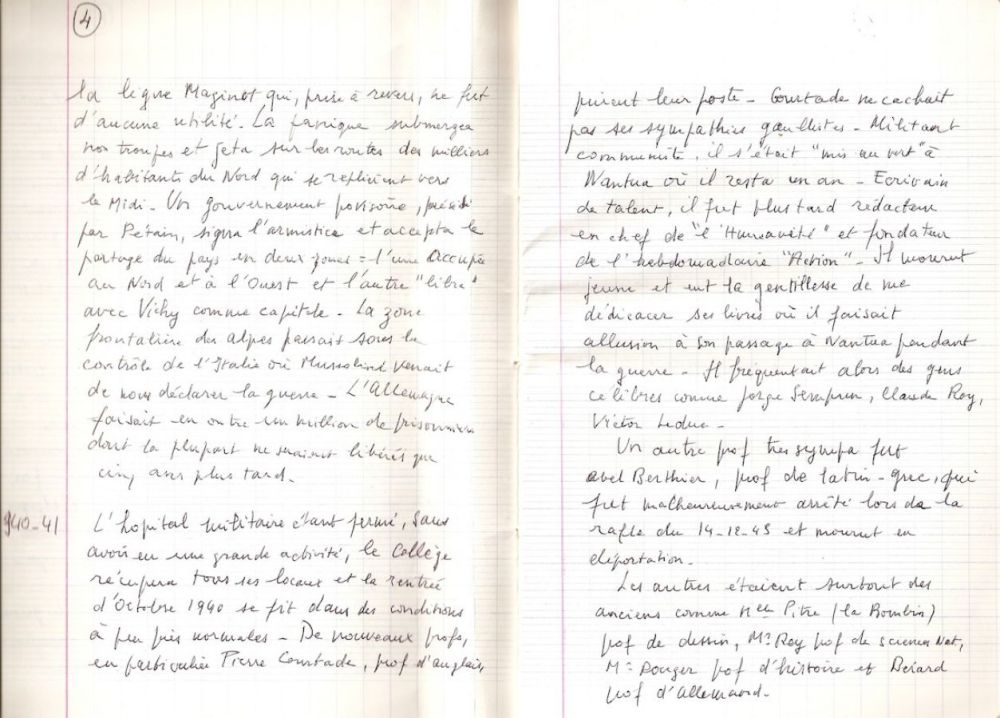 4
la ligne Maginot qui, prise à revers, ne fut
d'aucune utilité. La panique submergea
nos troupes et jeta sur les routes des milliers
d'habitants du Nord qui se replièrent vers
le Midi - Un gouvernement provisoire, présidé
par Pétain, signa l'armistice et accepta le
partage du pays en deux zones = l'une occupée
au Nord et à l'Ouest et l'autre "libre"
avec Vichy comme capitale - La zone
frontalière des alpes passait sous le
contrôle de l'Italie où Mussolini venait
de nous déclarer la guerre - L'Allemagne
faisait en outre un million de prisonniers
dont la plupart ne seraient libérés que
cinq ans plus tard.
940-41
L'hopital militaire étant fermé, sans
avoir eu une grande activité, le Collège
récupéra tous ses locaux et la rentrée
d'Octobre 1940 se fit dans des conditions
à peu près normales - De nouveaux profs,
en particulier Pierre Courtade, prof d'anglais,
prirent leur poste - Courtade ne cachait
pas ses sympathies gaullistes - Militant
communiste, il s'était "mis au vert" à
Nantua où il resta un an - Ecrivain
de talent, il fut plus tard rédacteur
en chef de "l'Humanité" et fondateur
de l'hebdomadaire "Action" - Il mourut
jeune et eut la gentillesse de me
dédicacer ses livres où il faisait
allusion à son passage à Nantua pendant
la guerre - Il fréquentait alors des gens
célèbres comme Jorge Semprun, Claude Roy,
Victor Leduc -
Un autre prof très sympa fut
abel Berthier, prof de latin-grec, qui
fut malheureusement arrêté lors de la
rafle du 14-12-43 et mourut en
déportation -
Les autres étaient surtout des
anciens comme Melle Pitre (la Bombin)
prof de dessin, Mr Roy prof de sciences Nat,
Mr Rouger prof d'histoire et Bérard
prof d'allemand.